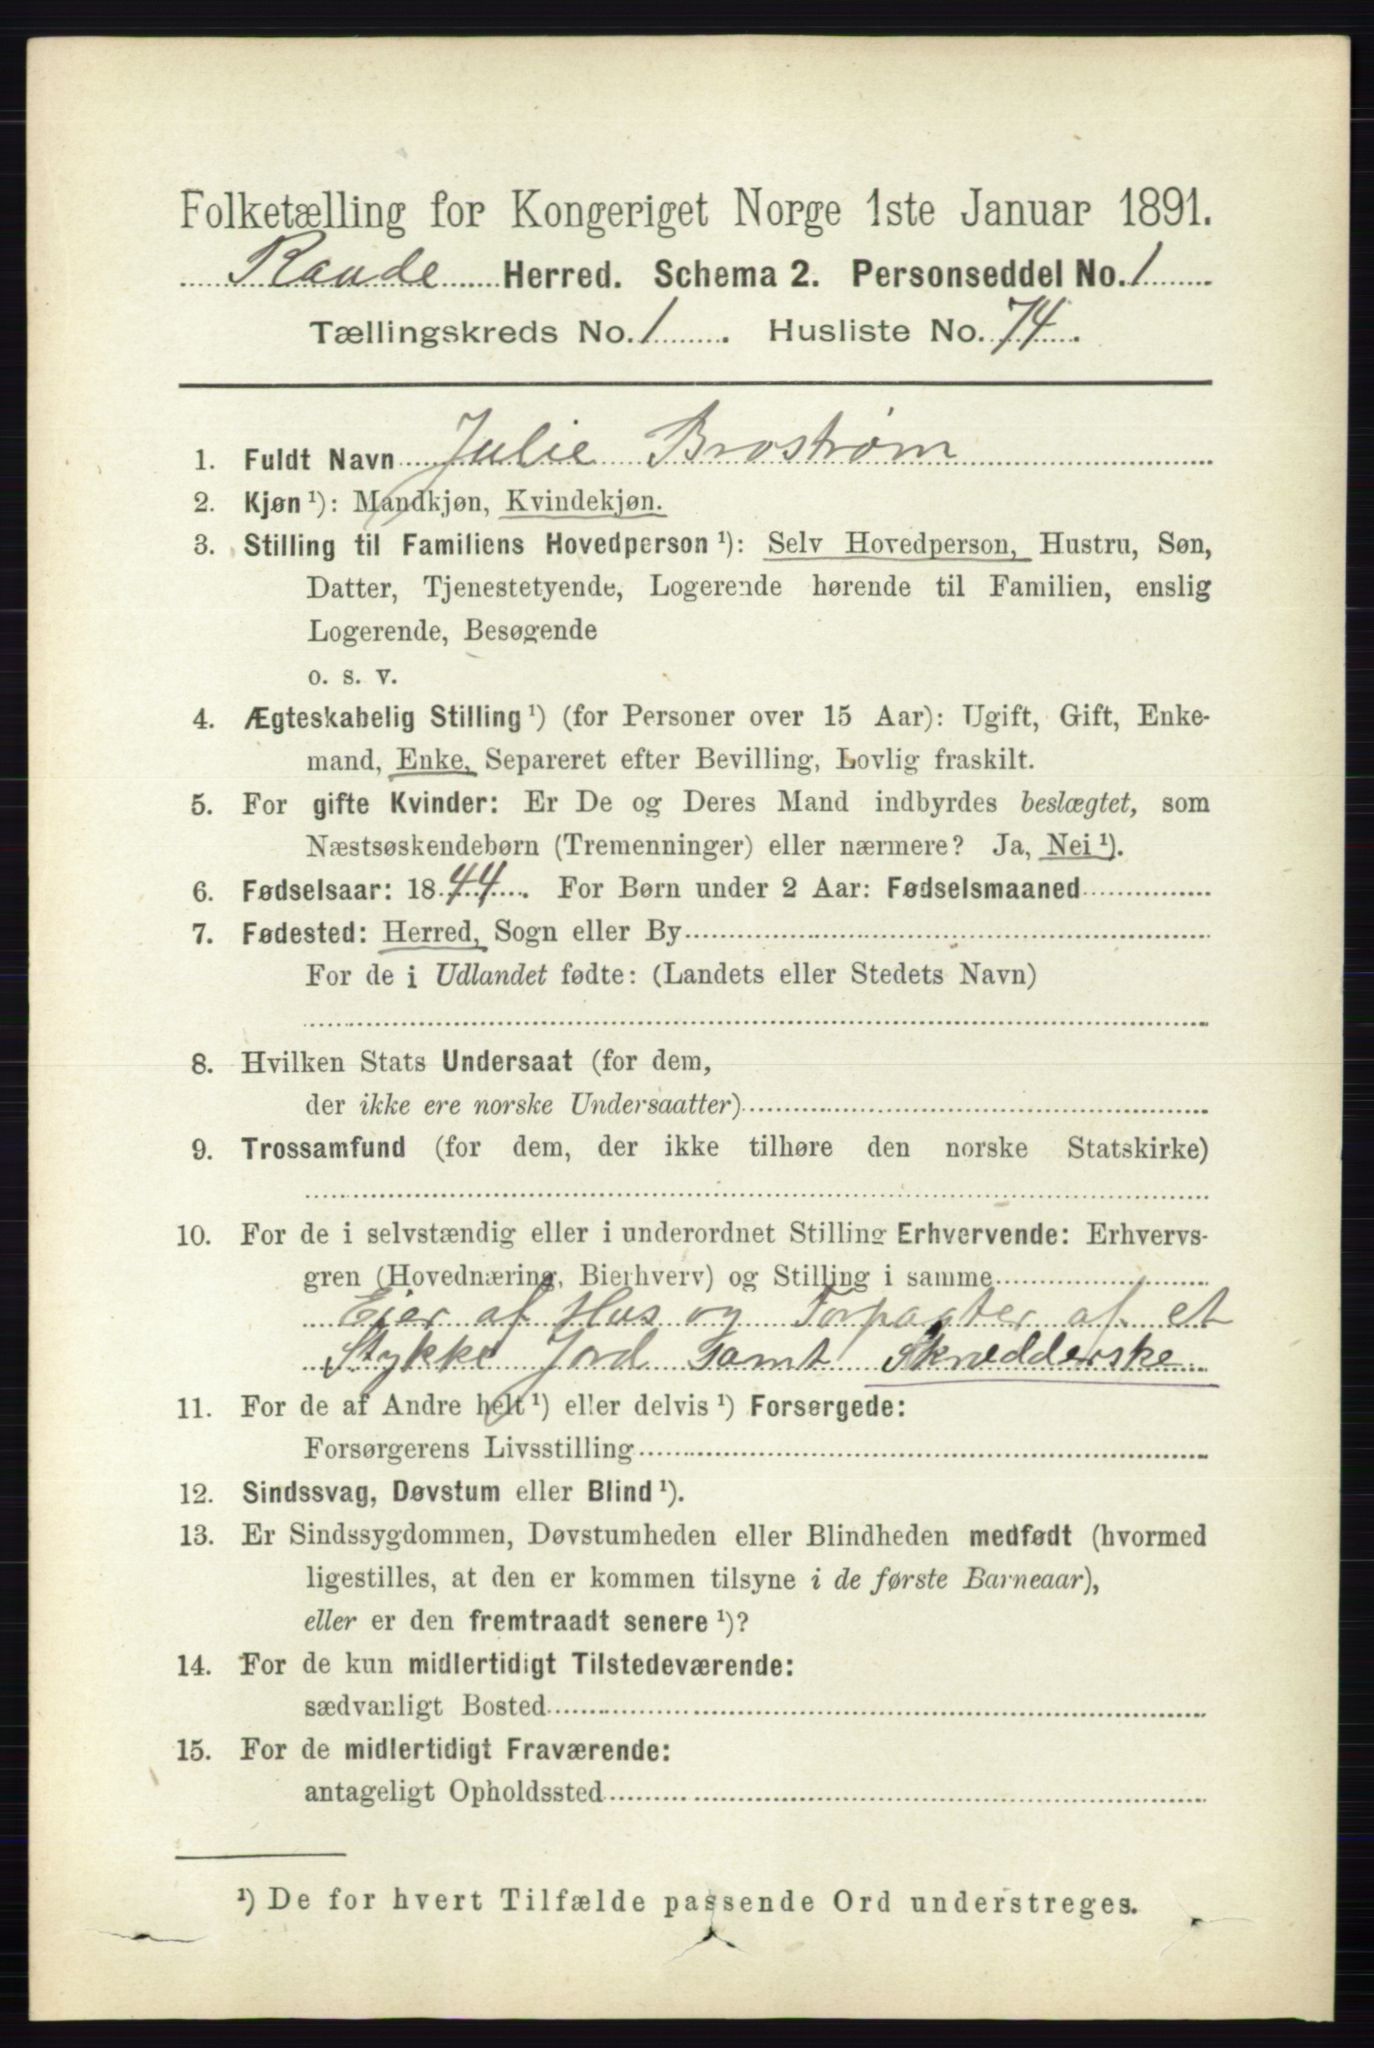 Folketælling for Kongeriget Norge 1ste Januar 1891.
Raade Herred. Schema 2. Personseddel No. 1
Tællingskreds No. 1. Husliste No. 74.
1. Fuldt Navn Julie Brostrøm
2. Kjøn ¹): Mandkjøn, Kvindekjøn.
3. Stilling til Familiens Hovedperson ¹): Selv Hovedperson, Hustru, Søn,
Datter, Tjenestetyende, Logerende hørende til Familien, enslig
Logerende, Besøgende
o. s. v.
4. Ægteskabelig Stilling ¹) (for Personer over 15 Aar): Ugift, Gift, Enke-
mand, Enke, Separeret efter Bevilling, Lovlig fraskilt.
5. For gifte Kvinder: Er De og Deres Mand indbyrdes beslægtet, som
Næstsøskendebørn (Tremenninger) eller nærmere? Ja, Nei ¹).
6. Fødselsaar: 1844. For Børn under 2 Aar: Fødselsmaaned
7. Fødested: Herred, Sogn eller By
For de i Udlandet fødte: (Landets eller Stedets Navn)
8. Hvilken Stats Undersaat (for dem,
der ikke ere norske Undersaatter)
9. Trossamfund (for dem, der ikke tilhøre den norske Statskirke)
10. For de i selvstændig eller i underordnet Stilling Erhvervende: Erhvervs-
gren (Hovednæring, Bierhverv) og Stilling i samme
Eier af Hus og Forpagter af et
Stykke Jord samt Skrædderske
11. For de af Andre helt ¹) eller delvis ¹) Forsørgede:
Forsørgerens Livsstilling
12. Sindssvag, Døvstum eller Blind ¹).
13. Er Sindssygdommen, Døvstumheden eller Blindheden medfødt (hvormed
ligestilles, at den er kommen tilsyne i de første Barneaar),
eller er den fremtraadt senere ¹)?
14. For de kun midlertidigt Tilstedeværende:
sædvanligt Bosted
15. For de midlertidigt Fraværende:
antageligt Opholdssted
¹) De for hvert Tilfælde passende Ord understreges.